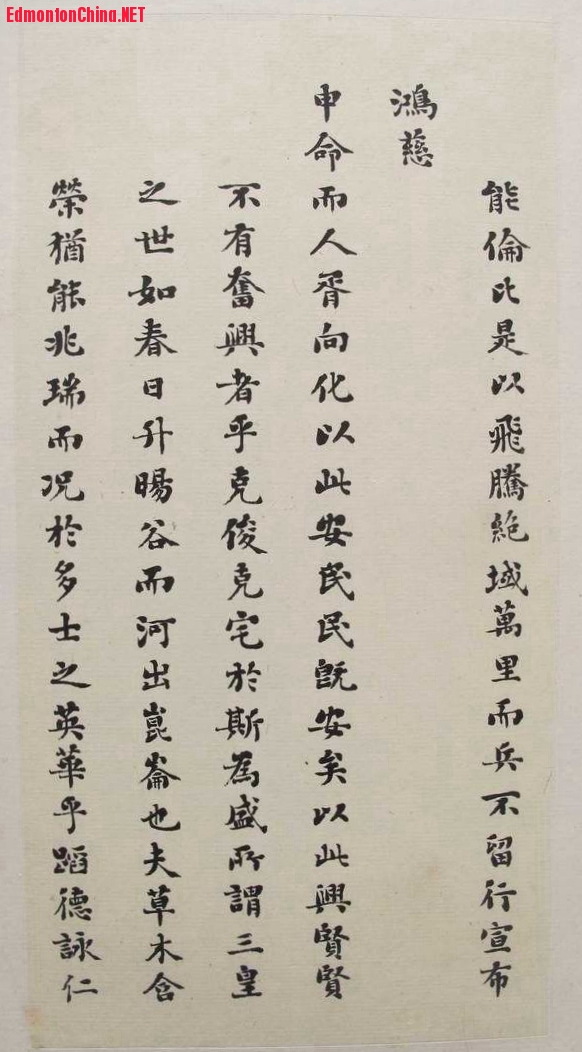 EdmontonChina.NET
能倫比是以飛騰絕域萬里而兵不留行宣布
鴻慈
申命而人胥向化以此安民民既安矣以此興賢賢
不有奮興者乎克俊克宅於斯為盛所謂三皇
之世如春日升暘谷而河出崑崙也夫草木含
榮猶能兆瑞而况於多士之英華乎蹈德詠仁